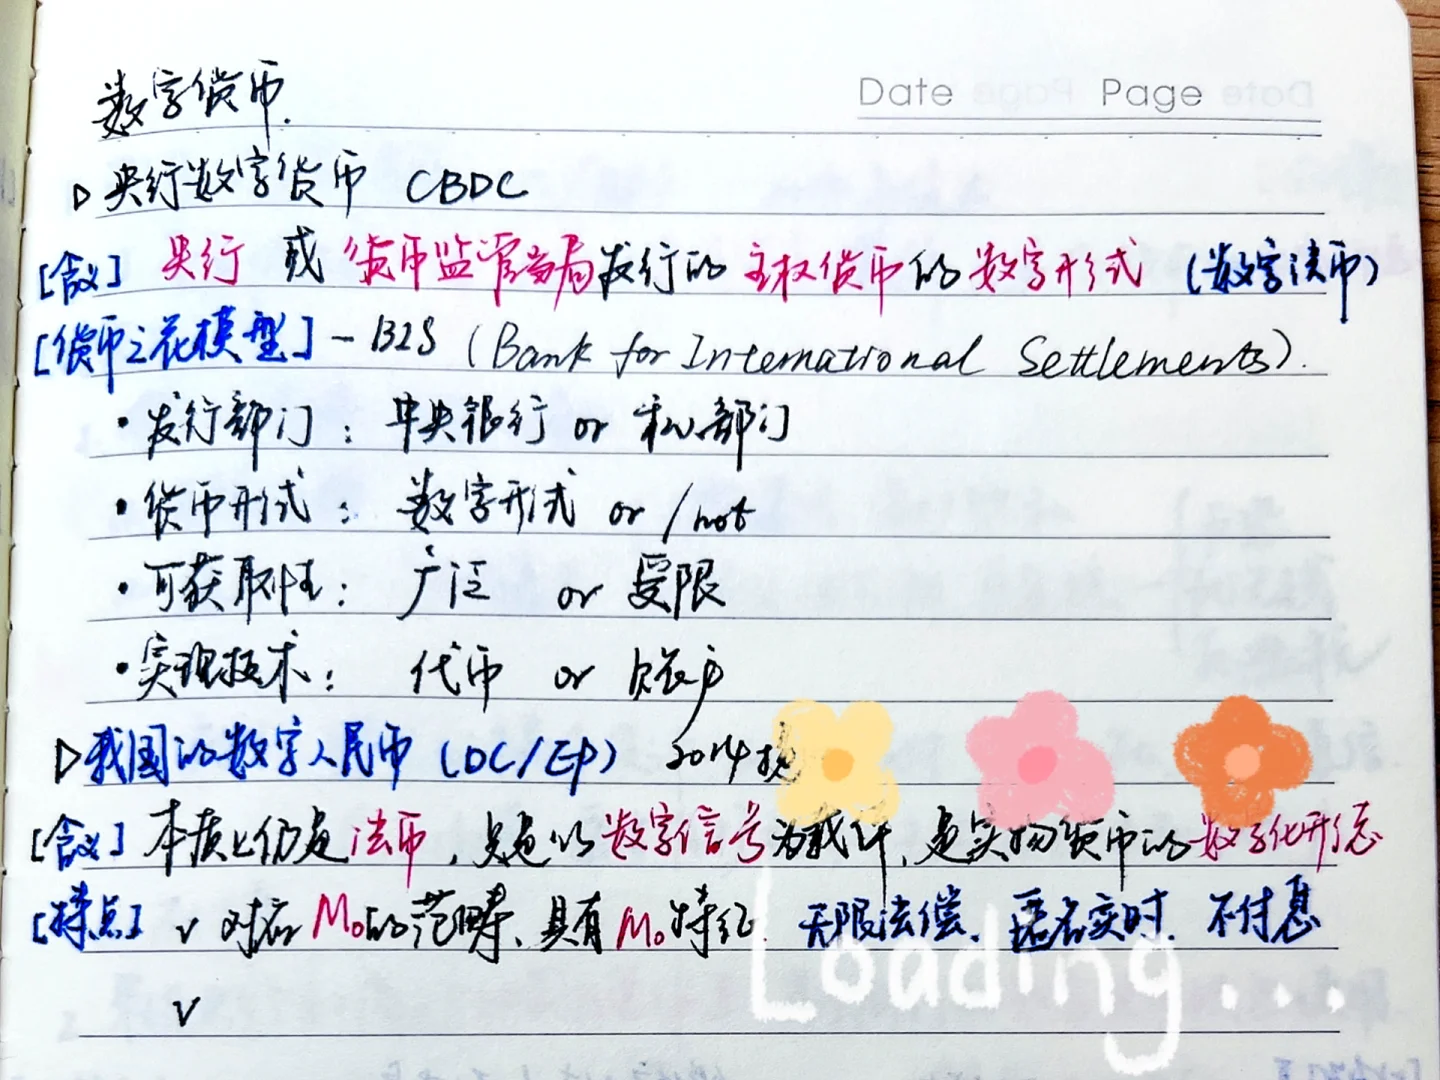 Date Page
数字货币.
▷央行数字货币 CBDC
[含义] 央行 或 货币监管当局发行的 主权货币的 数字形式 (数字法币)
[货币之花模型] - BIS (Bank for International Settlements).
·发行部门: 中央银行 or 私人部门
·货币形式: 数字形式 or /not
·可获取性: 广泛 or 受限
·实现技术: 代币 or 账户
▷我国的数字人民币 (DC/EP) 2014提
[含义] 本质上仍是法币, 只是以数字信号为载体, 是实物货币的数字化形态
[特点] v 对应M0的范畴、具有M0特征. 无限法偿、匿名实时、不付息
v
Loading...